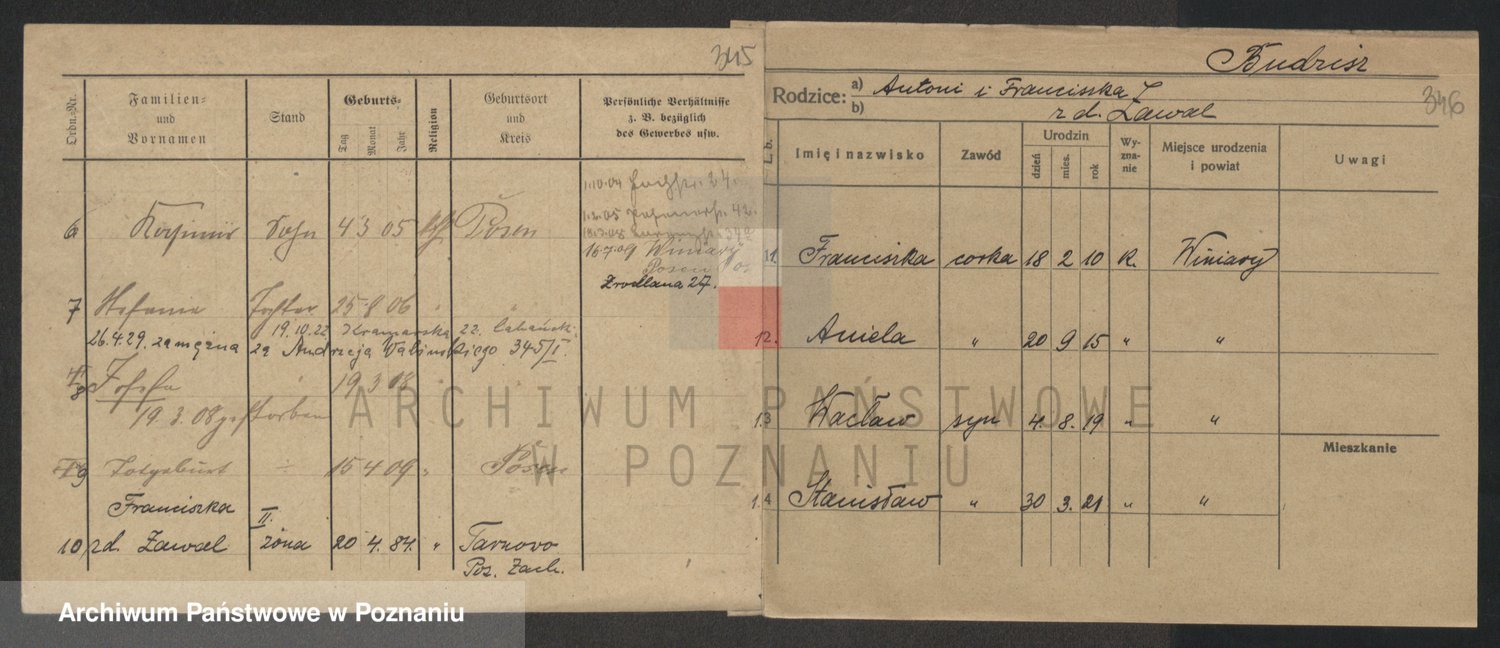 345
Ordn.-Nr.
Familien- und Vornamen
Stand
Geburts-
Tag Monat Jahr
Religion
Geburtsort und Kreis
Persönliche Verhältnisse z. B. bezüglich des Gewerbes usw.
1.10.04 24.
1.2.05 42.
6 Kasimir Sohn 4 3 05 Posen
16.7.09 Winiary
Posen
Zrodlana 27.
7 Stefania Tochter 25 8 06 "
19.10.22 Kramarska 22.
26.4.29. zamężna za Andrzeja 345/I.
8 Josefa 19 3 08
19. 3. 08 gestorben
9 Totgeburt 15 4 09 " Posen
Franciszka II.
10 z d. Zawal żona 20 4. 84. " Tarnovo
Poz. Zach.
Budzisz
346
Rodzice: a) Antoni i Franciszka
b) z d. Zawal
L. b.
Imię i nazwisko
Zawód
Urodzin
dzień mies. rok
Wyznanie
Miejsce urodzenia i powiat
Uwagi
11. Franciszka corka 18 2 10 K. Winiary
12. Aniela " 20 9 15 " "
13 Wacław syn 4. 8. 19 " "
Mieszkanie
14 Stanisław " 30 3. 21 " "
ARCHIWUM PAŃSTWOWE
W POZNANIU
Archiwum Państwowe w Poznaniu